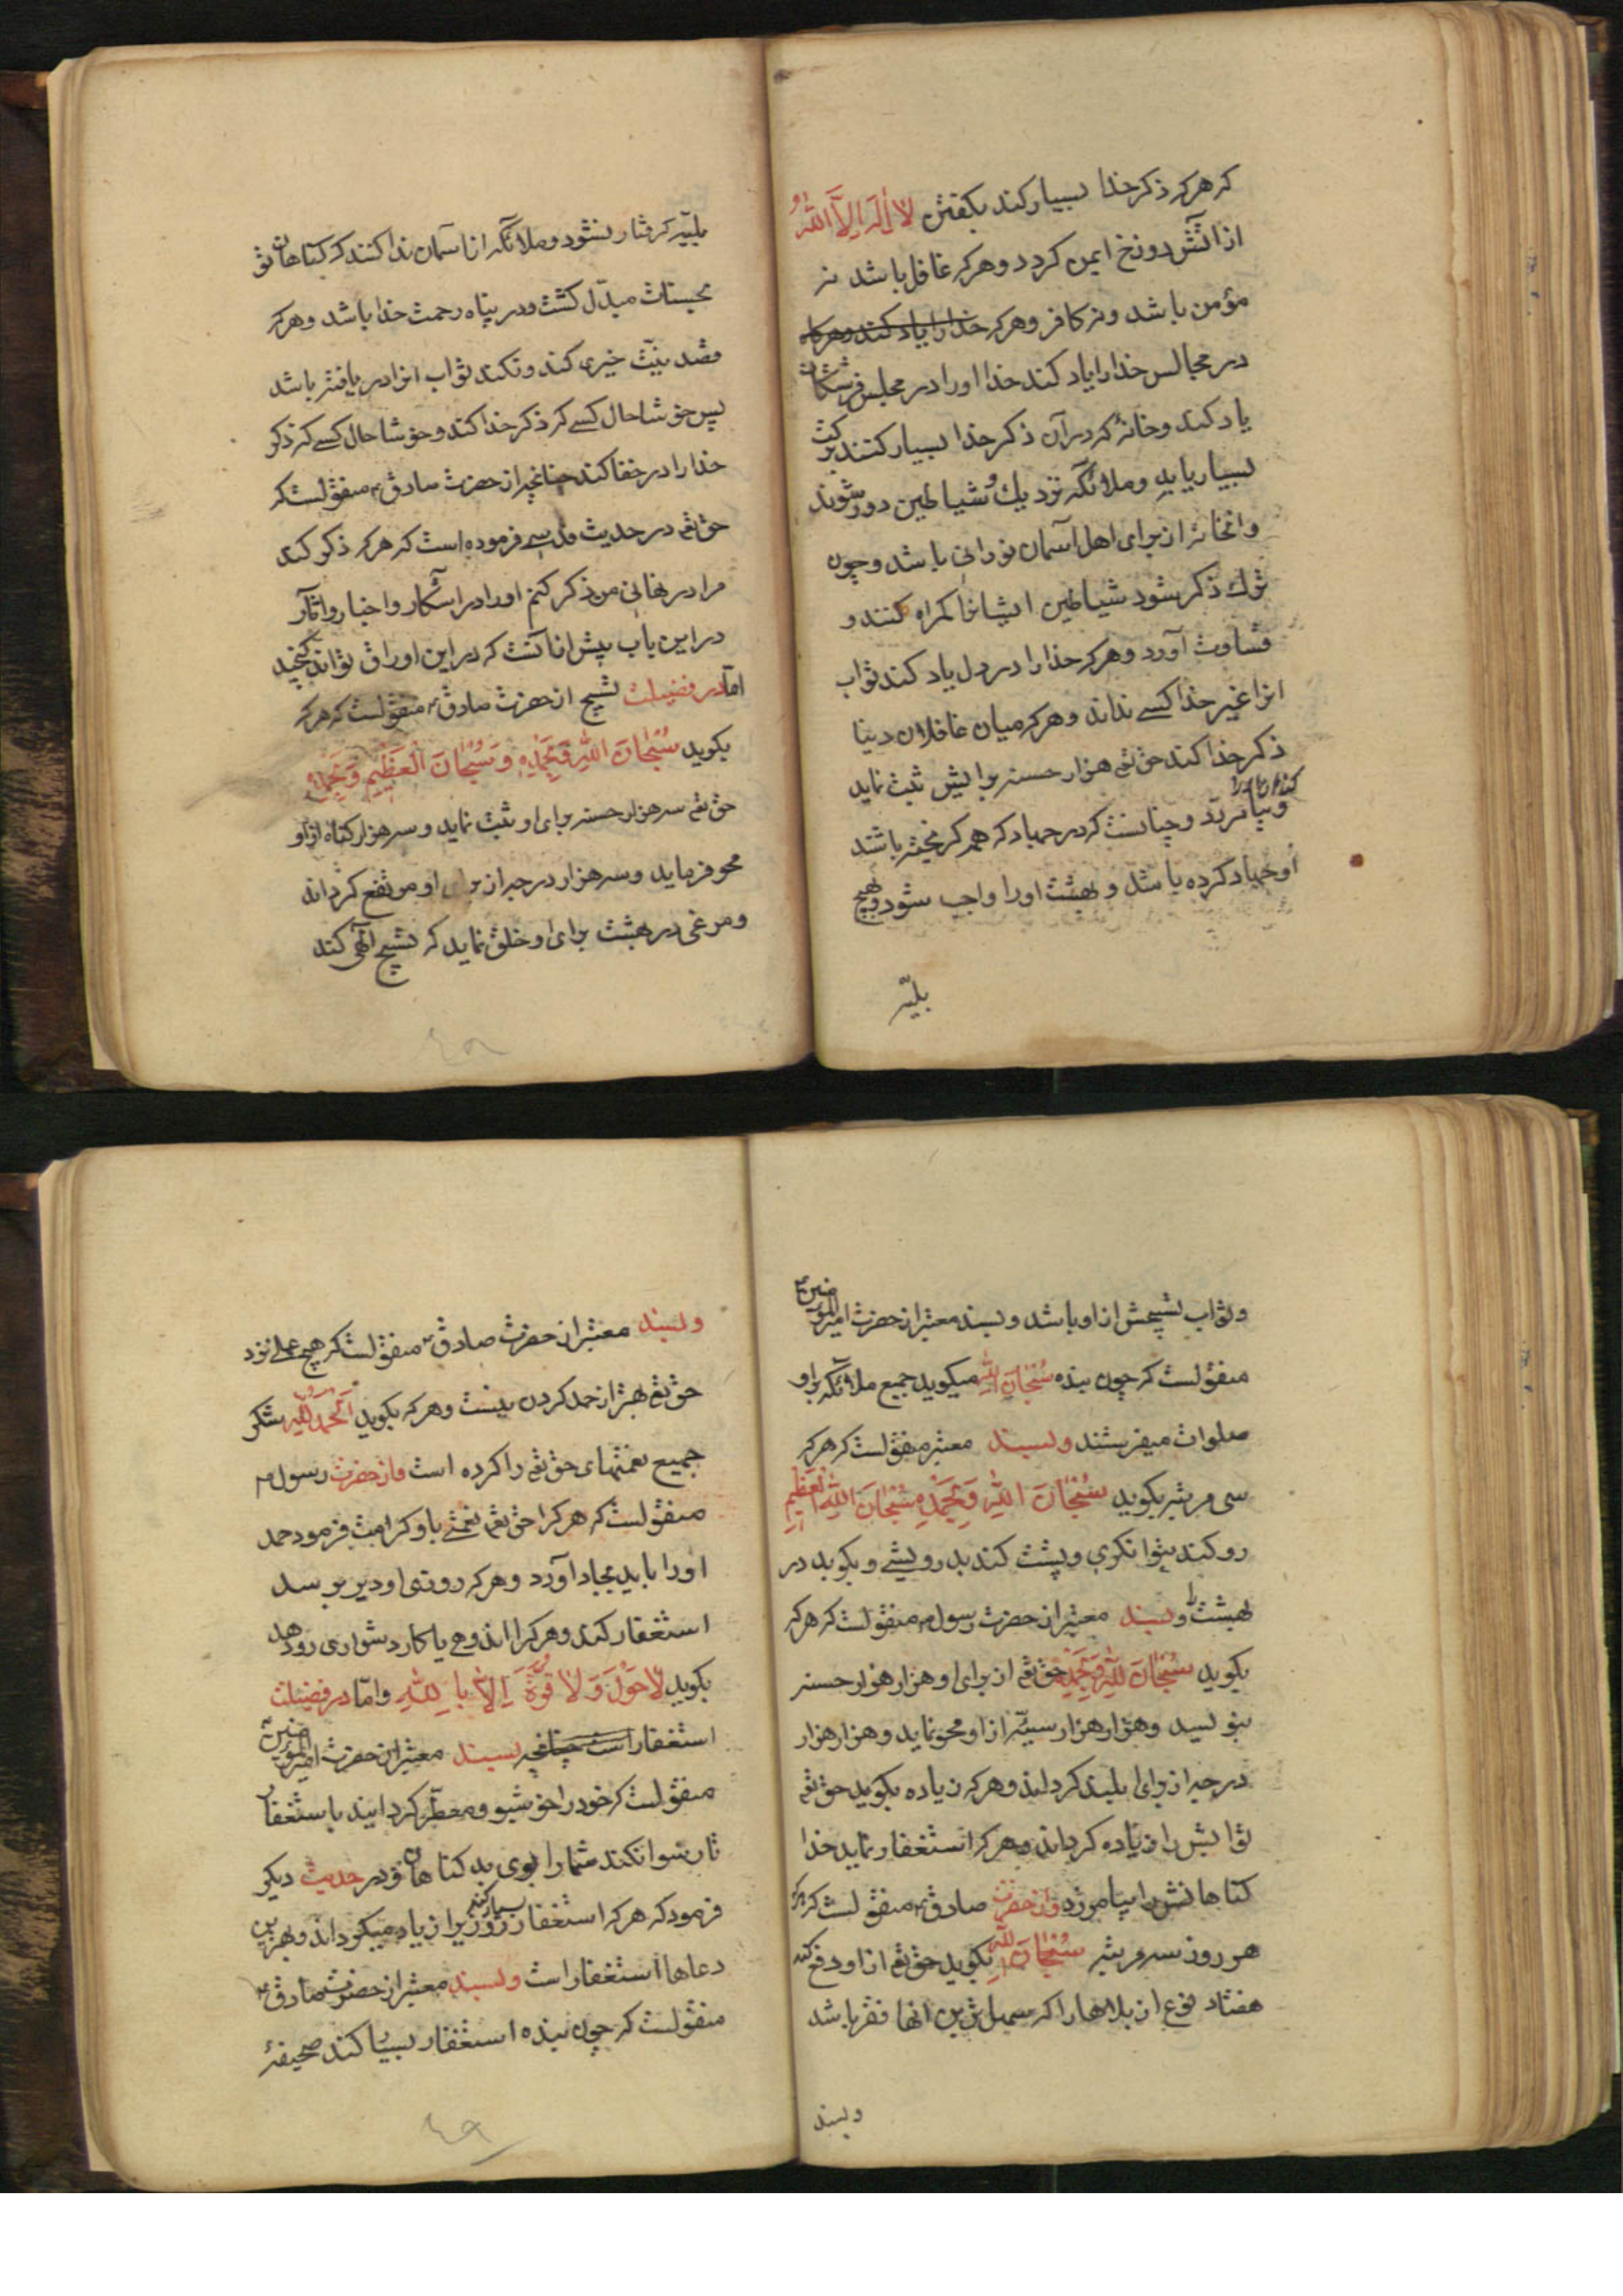 که هرکه ذکر خدا بسیار کند بگفتن لا إله إلّا الله او
از آتش دوزخ ایمن گردد و هرکه غافل باشد نه
مؤمن باشد و نه کافر و هرکه خدا را یاد کند و هرکه
در مجالس خدا را یاد کند خدا او را در مجلس فرشتگان
یاد کند و خانهٔ که در آن ذکر خدا بسیار کنند برکت
بسیار یابد و ملائکه نزدیک و شیاطین دور شوند
و انخانه از برای اهل آسمان نورانی باشد و چون
ترک ذکر شود شیاطین ایشانرا گمراه کنند و
قساوت آورد و هرکه خدا را در دل یاد کند ثواب
انرا غیر خدا کسے نداند و هرکه میان غافلان دنیا
ذکر خدا کند حق تع هزار حسنه برایش ثبت نماید
و گناهان او را بیامرزد و چنانست که در جهاد که همه گریخته باشند
او جهاد کرده باشد و بهشت او را واجب شود و بهیچ
بلیّه
بلیّه گرفتار نشود و ملائکه از آسمان ندا کنند که گناهان تو
بحسنات مبدّل گشت و در پناه رحمت خدا باشد و هرکه
قصد بنیّت خیری کند و نکند ثواب انرا دریافته باشد
پس خوشا حال کسے که ذکر خدا کند و خوشا حال کسے که ذکر
خدا را در خفا کند چنانچه از حضرت صادق ع منقولست که
حق تع در حدیث قدسے فرموده است که هرکه ذکر کند
مرا در نهانی من ذکر کنم او را در آشکار و اخبار و اثار
در این باب بیش از انست که در این اوراق تواند گنجید
امّا در فضیلت تسبیح از حضرت صادق ع منقولست که هرکه
بگوید سُبْحَانَ اللهِ وَبِحَمْدِهِ وَسُبْحَانَ الْعَظِیمِ وَبِحَمْدِهِ
حق تع سه هزار حسنه برای او ثبت نماید و سه هزار گناه از او
محو فرماید و سه هزار درجه از برای او مرتفع گرداند
و مرغی در بهشت برای او خلق نماید که تسبیح الٓهی کند
٤٨
و ثواب تسبیحش از او باشد و بسند معتبر از حضرت امیرالمؤمنین ع
منقولست که چون بنده سُبْحَانَ اللهِ میگوید جمیع ملائکه بر او
صلوات میفرستند و بسند معتبر منقولست که هرکه
سی مرتبه بگوید سُبْحَانَ اللهِ وَبِحَمْدِهِ سُبْحَانَ اللهِ الْعَظِیمِ
رو کند بتوانگری و پشت کند بدرویشے و بگوید در
بهشت را و بسند معتبر از حضرت رسول ص منقولست که هرکه
بگوید سُبْحَانَ اللهِ وَبِحَمْدِهِ حق تع از برای او هزار هزار حسنه
بنویسد و هزار هزار سیّئه از او محو نماید و هزار هزار
درجه از برای او بلند گرداند و هرکه زیاده بگوید حق تع
ثوابش را زیاده گرداند و هرکه استغفار نماید خدا
گناهانش را بیامرزد و از حضرت صادق ع منقولست که هرکه
هر روز سه مرتبه سُبْحَانَ اللهِ بگوید حق تع از او دفع کند
هفتاد نوع از بلاها را که سهل ترین انها فقر باشد
و بسند
و بسند معتبر از حضرت صادق ع منقولست که هیچ عملے نزد
حق تع بهتر از حمد کردن نیست و هرکه بگوید اَلْحَمْدُ لِلهِ شکر
جمیع نعمتهای حق تع را کرده است و از حضرت رسول ص
منقولست که هرکرا حق تع نعمتے باو کرامت فرمود حمد
او را باید بجا آورد و هرکه روزی او دیر برسد
استغفار کند و هرکرا اندوهی یا کار دشواری رو دهد
بگوید لَا حَوْلَ وَلَا قُوَّةَ اِلَّا بِاللهِ و امّا در فضیلت
استغفار است چنانچه بسند معتبر از حضرت امیرالمؤمنین ع
منقولست که خود را خوشبو و معطّر گردانید باستغفار
تا رسوا نکند شما را بوی بد گناهان و در حدیث دیگر
فرمود که هرکه استغفار بسیار کند روزیرا زیاد میگرداند و بهترین
دعاها استغفار است و بسند معتبر از حضرت صادق ع
منقولست که چون بنده استغفار بسیار کند صحیفهٔ
٤٩